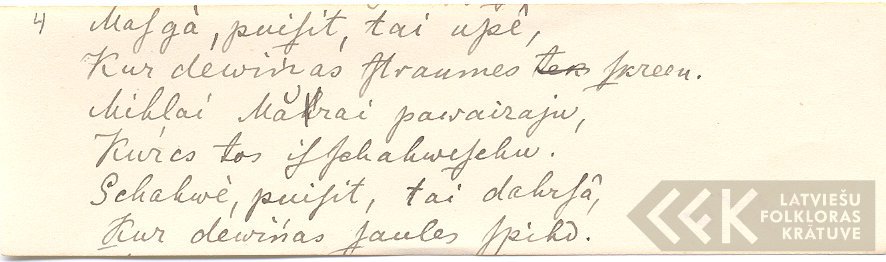 4 Maſgà, puiſit, tai upê,
Kur dewiņas ſtraumes ~~tek~~ ſkreen.
Mihlai Mahrai pawaizaju,
Kur es tos iſſchahweſchu.
Schahwè, puiſit, tai dahrſâ,
Kur dewiņas ſaules ſpihd.
LATVIEŠU
FOLKLORAS
KRĀTUVE